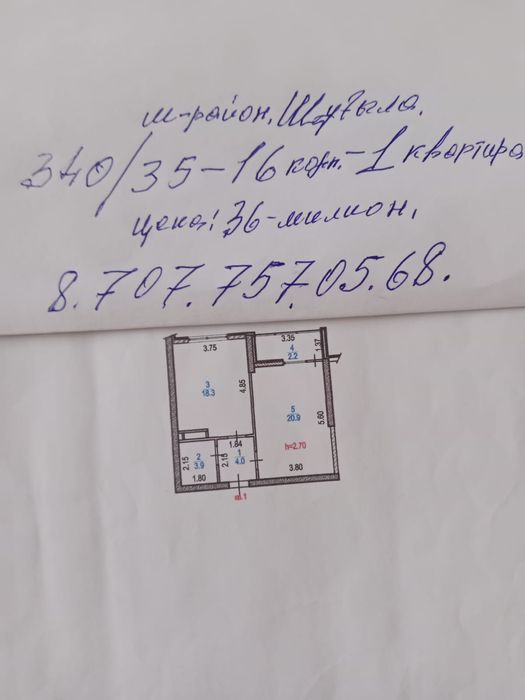 м-район. Шуғыла.
340/35-16 корп.-1 квартира
цена: 36-милион.
8.707.757.05.68.
3.75
3.35
4
2.2
1.37
3
18.3
4.85
5
20.9
5.60
h=2.70
1.84
2
3.9
2.15
1
4.0
2.15
1.80
3.80
кв.1